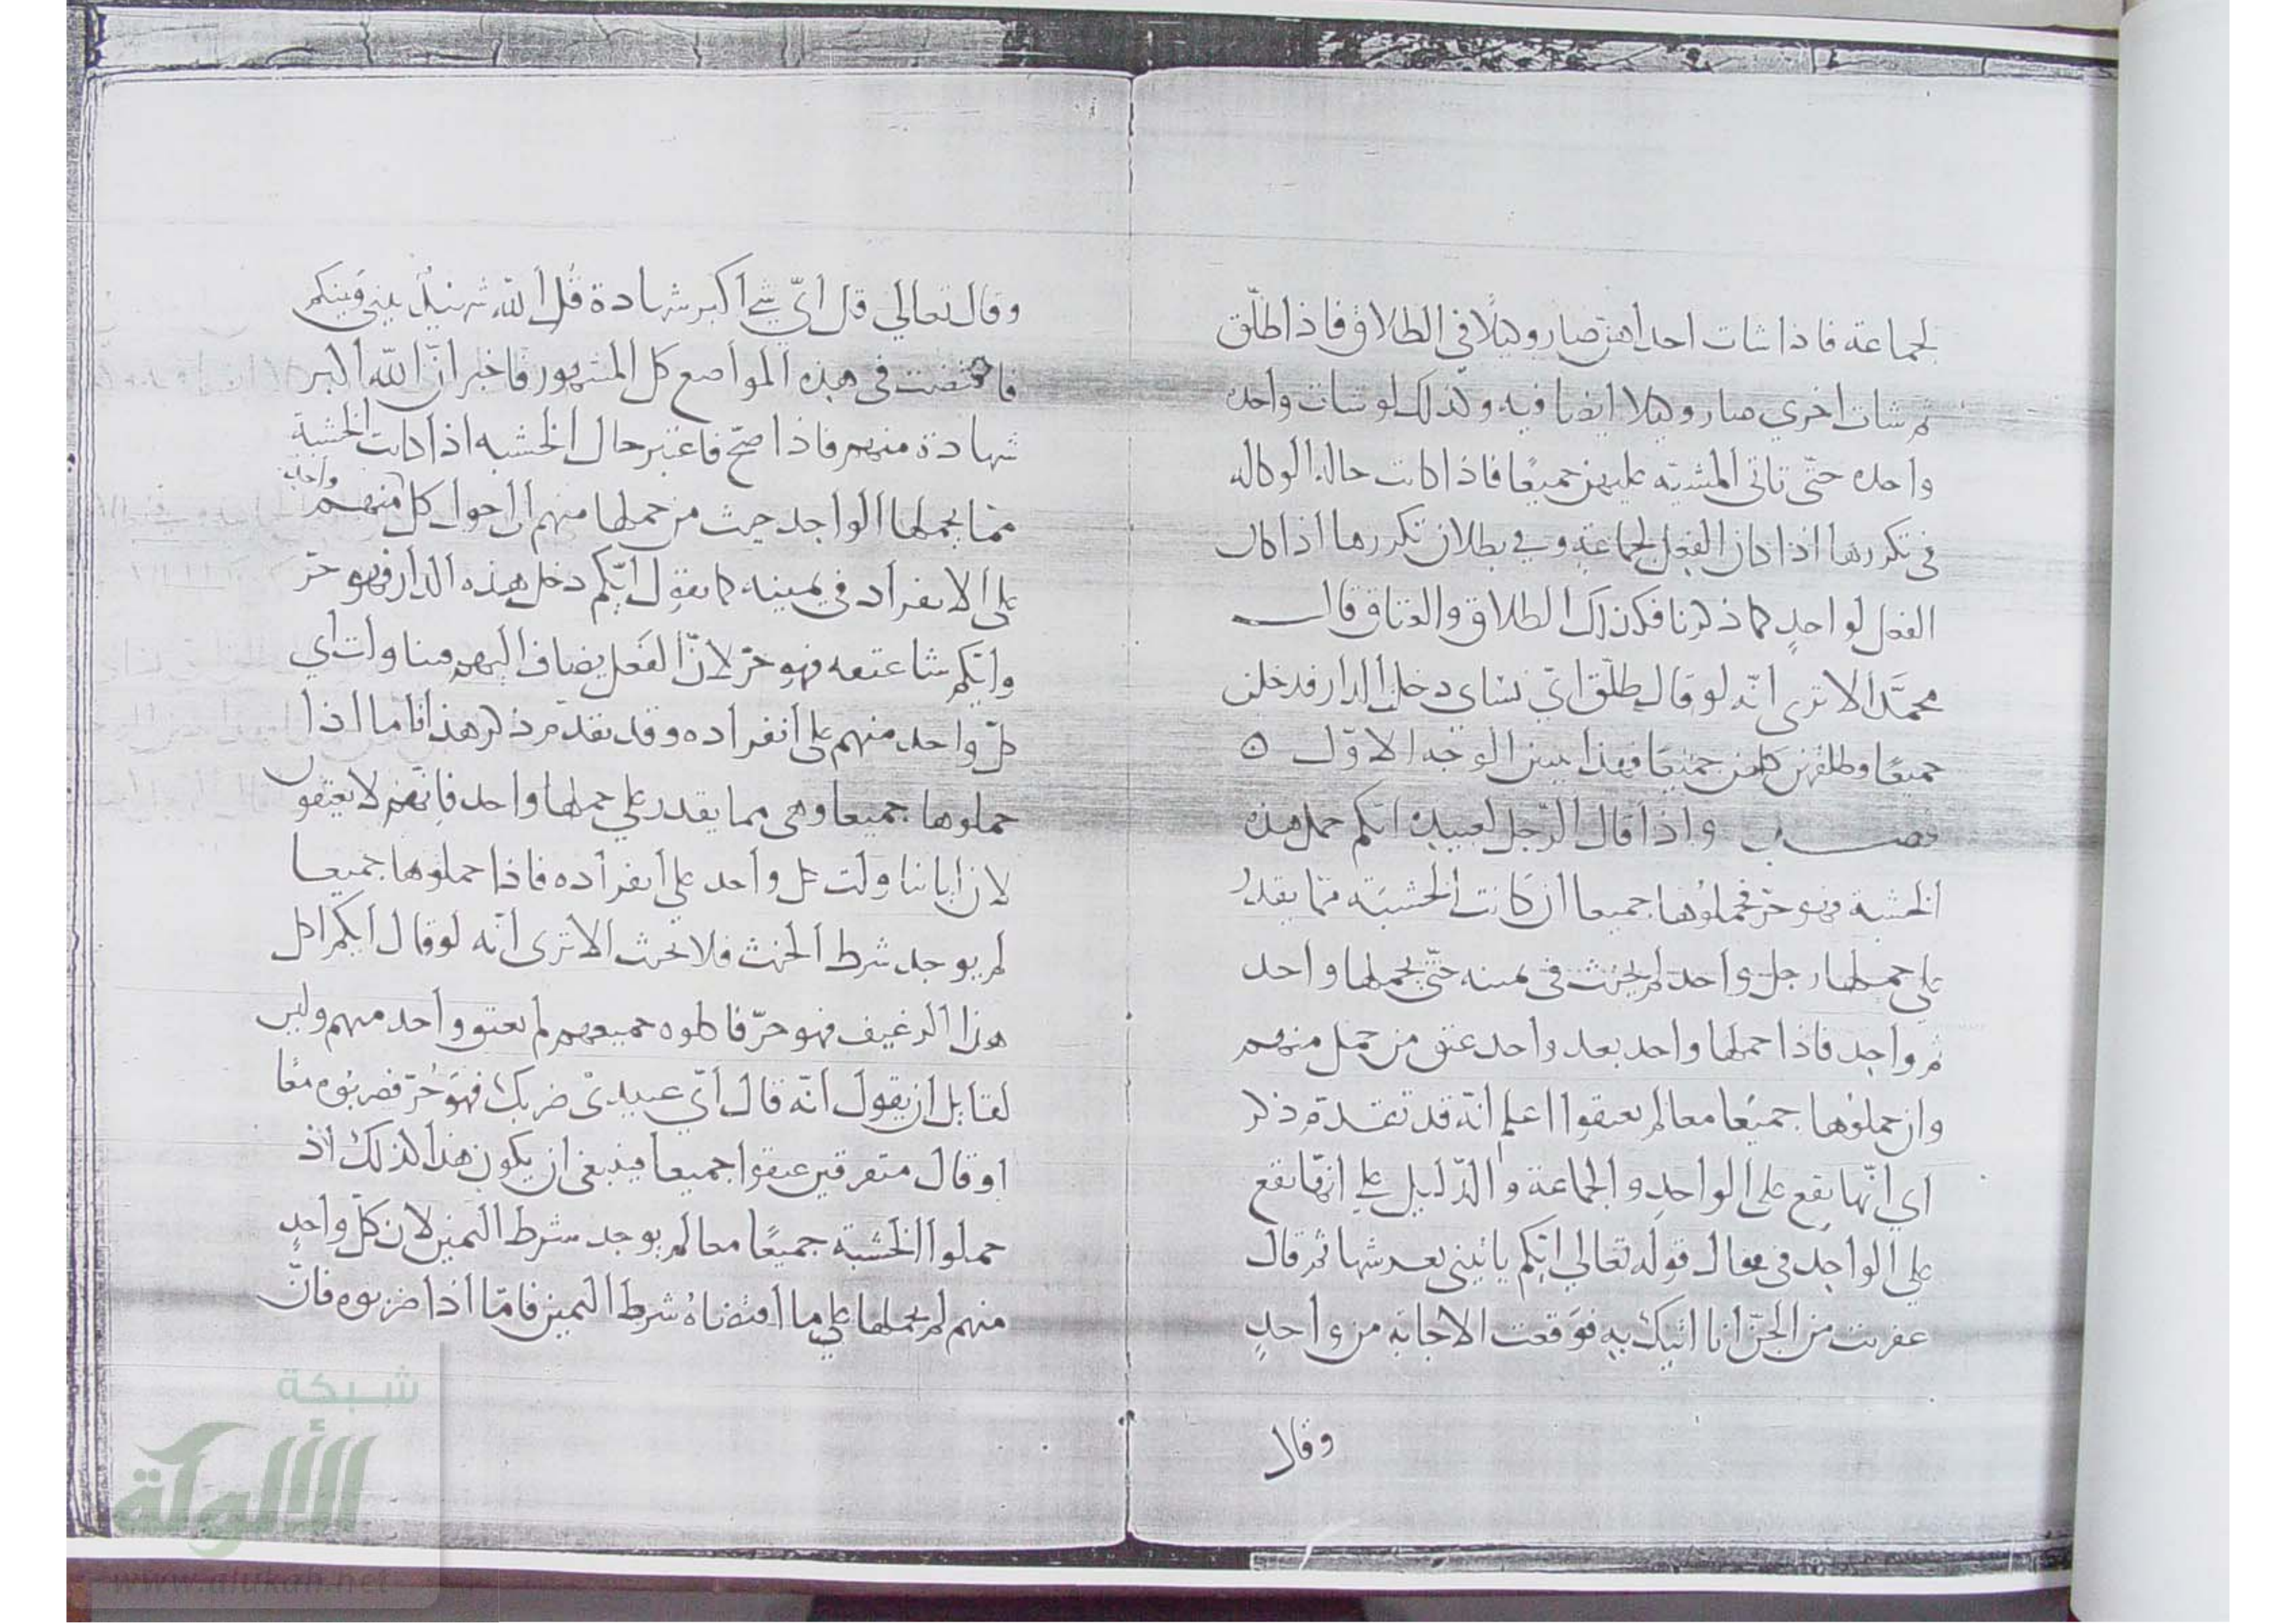 لجماعة فاذا شات احداهن صار وكيلا في الطلاق فاذا طلّق
ثم شات اخري صار وكيلا ايضا فيه وكذلك لو شات واحده
واحده حتّى تاتى المشيّه عليهن جميعًا فاذا كانت حال الوكاله
فى تكررها اذا كان الفعل لجماعةٍ وفي بطلان تكررها اذا كان
الفعل لواحدٍ كما ذكرنا فكذلك الطلاق والعتاق قال
محمّد الا ترى انّه لو قال طلّق ايّ نساى دخل الدار فدخلن
جميعًا وطلقهن كلهن جميعًا فهذا يبين الوجه الاوّل ه
فصـــل واذا قال الرّجل لعبيده ايكم حمل هذه
الخشبة فهو حرّ فحملوُها جميعا ان كانت الخشبَة ممّا يقدرُ
على حملها رجل واحد لم يحنث فى يمينه حتّى يحملها واحد
ثم واحد فاذا حملها واحد بعد واحد عتق من حمل منهم
وان حملوُها جميعًا معا لم يعتقوا اعلم انّه قد تقدّم ذكر
اي انّها يقع على الواحدِ والجماعة والدّليل على انهّا تقع
على الواحِد فى قوله تعالي ايّكم ياتينى بعرشها ثم قال
عفريت من الجنّ انا اتيك بهِ فوَقعت الاجابَة من واحدٍ
وقال
وقال تعالى قل ايّ شي أكبر شهادة قُل اللّه شهيدٌ بينى وَبينكم
فى هذه المواضع كل المشهور فاخبر انّ اللّه اكبر
شهادة منهم فاذا صحّ فاعتبر حال الخشبه اذا كانت الخشبة
ممّا يحملها الواحد حيث من حملها منهم كل منهم واحد
على الانفراد فى يمينه كما يقول ايّكم دخل هذه الدار فهو حرّ
وايّكم شا عتقه فهو حرّ لانّ الفَعل يضاف اليهم فتناولت اي
كلّ واحد منهم على انفراده وقد تقدّم ذكر هذا فامّا اذا
حملوها جميعا وهى مما يقدر على حملها واحد فانّهم لا يعتقون
لان ايا تناولت كل واحد على انفراده فاذا حملوها جميعا
لم يوجد شرط الحنث فلا تحنث الا ترى انّه لو قال ايكم اكل
هذا الرغيف فهو حرّ فاكلوه جميعهم لم يعتق واحد منهم وليس
لقايل ان يقول انّه قال ايّ عبيدىْ ضربك فهوَ حُرّ فضربوه معًا
او قال متفرقين عتقوا جميعا فينبغى ان يكون هذا كذلك اذ
حملوا الخشبة جميعًا معا لم يوجد شرط اليَمين لان كلّ واحدٍ
منهم لم يحملها على ما شرط اليمين فامّا اذا ضربوه فانّ
شبكة
الألوكة
www.alukah.net